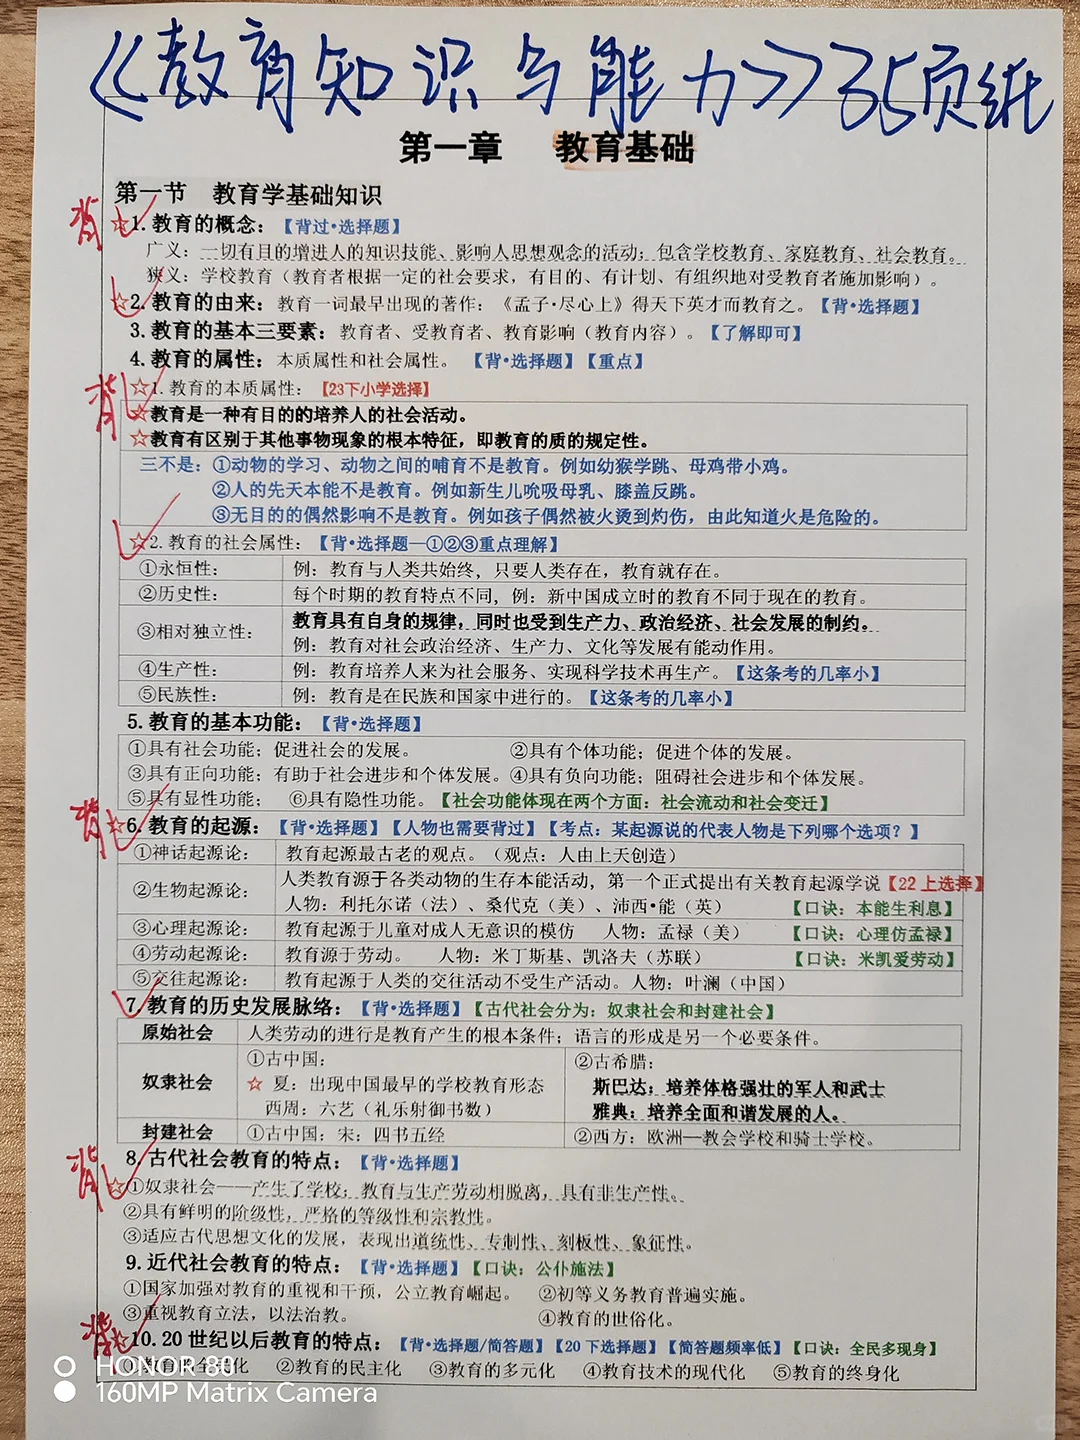 《教育知识与能力》35页纸
第一章 教育基础
第一节 教育学基础知识
背
☆1. 教育的概念：【背过•选择题】
广义：一切有目的增进人的知识技能、影响人思想观念的活动；包含学校教育、家庭教育、社会教育。
狭义：学校教育（教育者根据一定的社会要求，有目的、有计划、有组织地对受教育者施加影响）。
☆2. 教育的由来：教育一词最早出现的著作：《孟子•尽心上》得天下英才而教育之。【背•选择题】
3. 教育的基本三要素：教育者、受教育者、教育影响（教育内容）。【了解即可】
4. 教育的属性：本质属性和社会属性。【背•选择题】【重点】
背
☆1. 教育的本质属性：【23下小学选择】
☆教育是一种有目的的培养人的社会活动。
☆教育有区别于其他事物现象的根本特征，即教育的质的规定性。
三不是：①动物的学习、动物之间的哺育不是教育。例如幼猴学跳、母鸡带小鸡。
②人的先天本能不是教育。例如新生儿吮吸母乳、膝盖反跳。
③无目的的偶然影响不是教育。例如孩子偶然被火烫到灼伤，由此知道火是危险的。
☆2. 教育的社会属性：【背•选择题—①②③重点理解】
①永恒性： 例：教育与人类共始终，只要人类存在，教育就存在。
②历史性： 每个时期的教育特点不同，例：新中国成立时的教育不同于现在的教育。
③相对独立性： 教育具有自身的规律，同时也受到生产力、政治经济、社会发展的制约。
例：教育对社会政治经济、生产力、文化等发展有能动作用。
④生产性： 例：教育培养人来为社会服务、实现科学技术再生产。【这条考的几率小】
⑤民族性： 例：教育是在民族和国家中进行的。【这条考的几率小】
5. 教育的基本功能：【背•选择题】
①具有社会功能；促进社会的发展。 ②具有个体功能；促进个体的发展。
③具有正向功能；有助于社会进步和个体发展。④具有负向功能；阻碍社会进步和个体发展。
⑤具有显性功能； ⑥具有隐性功能。【社会功能体现在两个方面：社会流动和社会变迁】
背
☆6. 教育的起源：【背•选择题】【人物也需要背过】【考点：某起源说的代表人物是下列哪个选项？】
①神话起源论： 教育起源最古老的观点。（观点：人由上天创造）
②生物起源论： 人类教育源于各类动物的生存本能活动，第一个正式提出有关教育起源学说【22上选择】
人物：利托尔诺（法）、桑代克（美）、沛西•能（英） 【口诀：本能生利息】
③心理起源论： 教育起源于儿童对成人无意识的模仿 人物：孟禄（美） 【口诀：心理仿孟禄】
④劳动起源论： 教育源于劳动。 人物：米丁斯基、凯洛夫（苏联） 【口诀：米凯爱劳动】
⑤交往起源论： 教育起源于人类的交往活动不受生产活动。人物：叶澜（中国）
7. 教育的历史发展脉络：【背•选择题】【古代社会分为：奴隶社会和封建社会】
原始社会 人类劳动的进行是教育产生的根本条件；语言的形成是另一个必要条件。
奴隶社会 ①古中国：
☆ 夏：出现中国最早的学校教育形态
西周：六艺（礼乐射御书数）
②古希腊：
斯巴达：培养体格强壮的军人和武士
雅典：培养全面和谐发展的人。
封建社会 ①古中国：宋：四书五经 ②西方：欧洲—教会学校和骑士学校。
8. 古代社会教育的特点：【背•选择题】
背
☆①奴隶社会——产生了学校；教育与生产劳动相脱离，具有非生产性。
②具有鲜明的阶级性，严格的等级性和宗教性。
③适应古代思想文化的发展，表现出道统性、专制性、刻板性、象征性。
9. 近代社会教育的特点：【背•选择题】【口诀：公仆施法】
①国家加强对教育的重视和干预，公立教育崛起。 ②初等义务教育普遍实施。
③重视教育立法，以法治教。 ④教育的世俗化。
背
☆10. 20世纪以后教育的特点：【背•选择题/简答题】【20下选择题】【简答题频率低】【口诀：全民多现身】
①教育的全民化 ②教育的民主化 ③教育的多元化 ④教育技术的现代化 ⑤教育的终身化
HONOR 80
160MP Matrix Camera